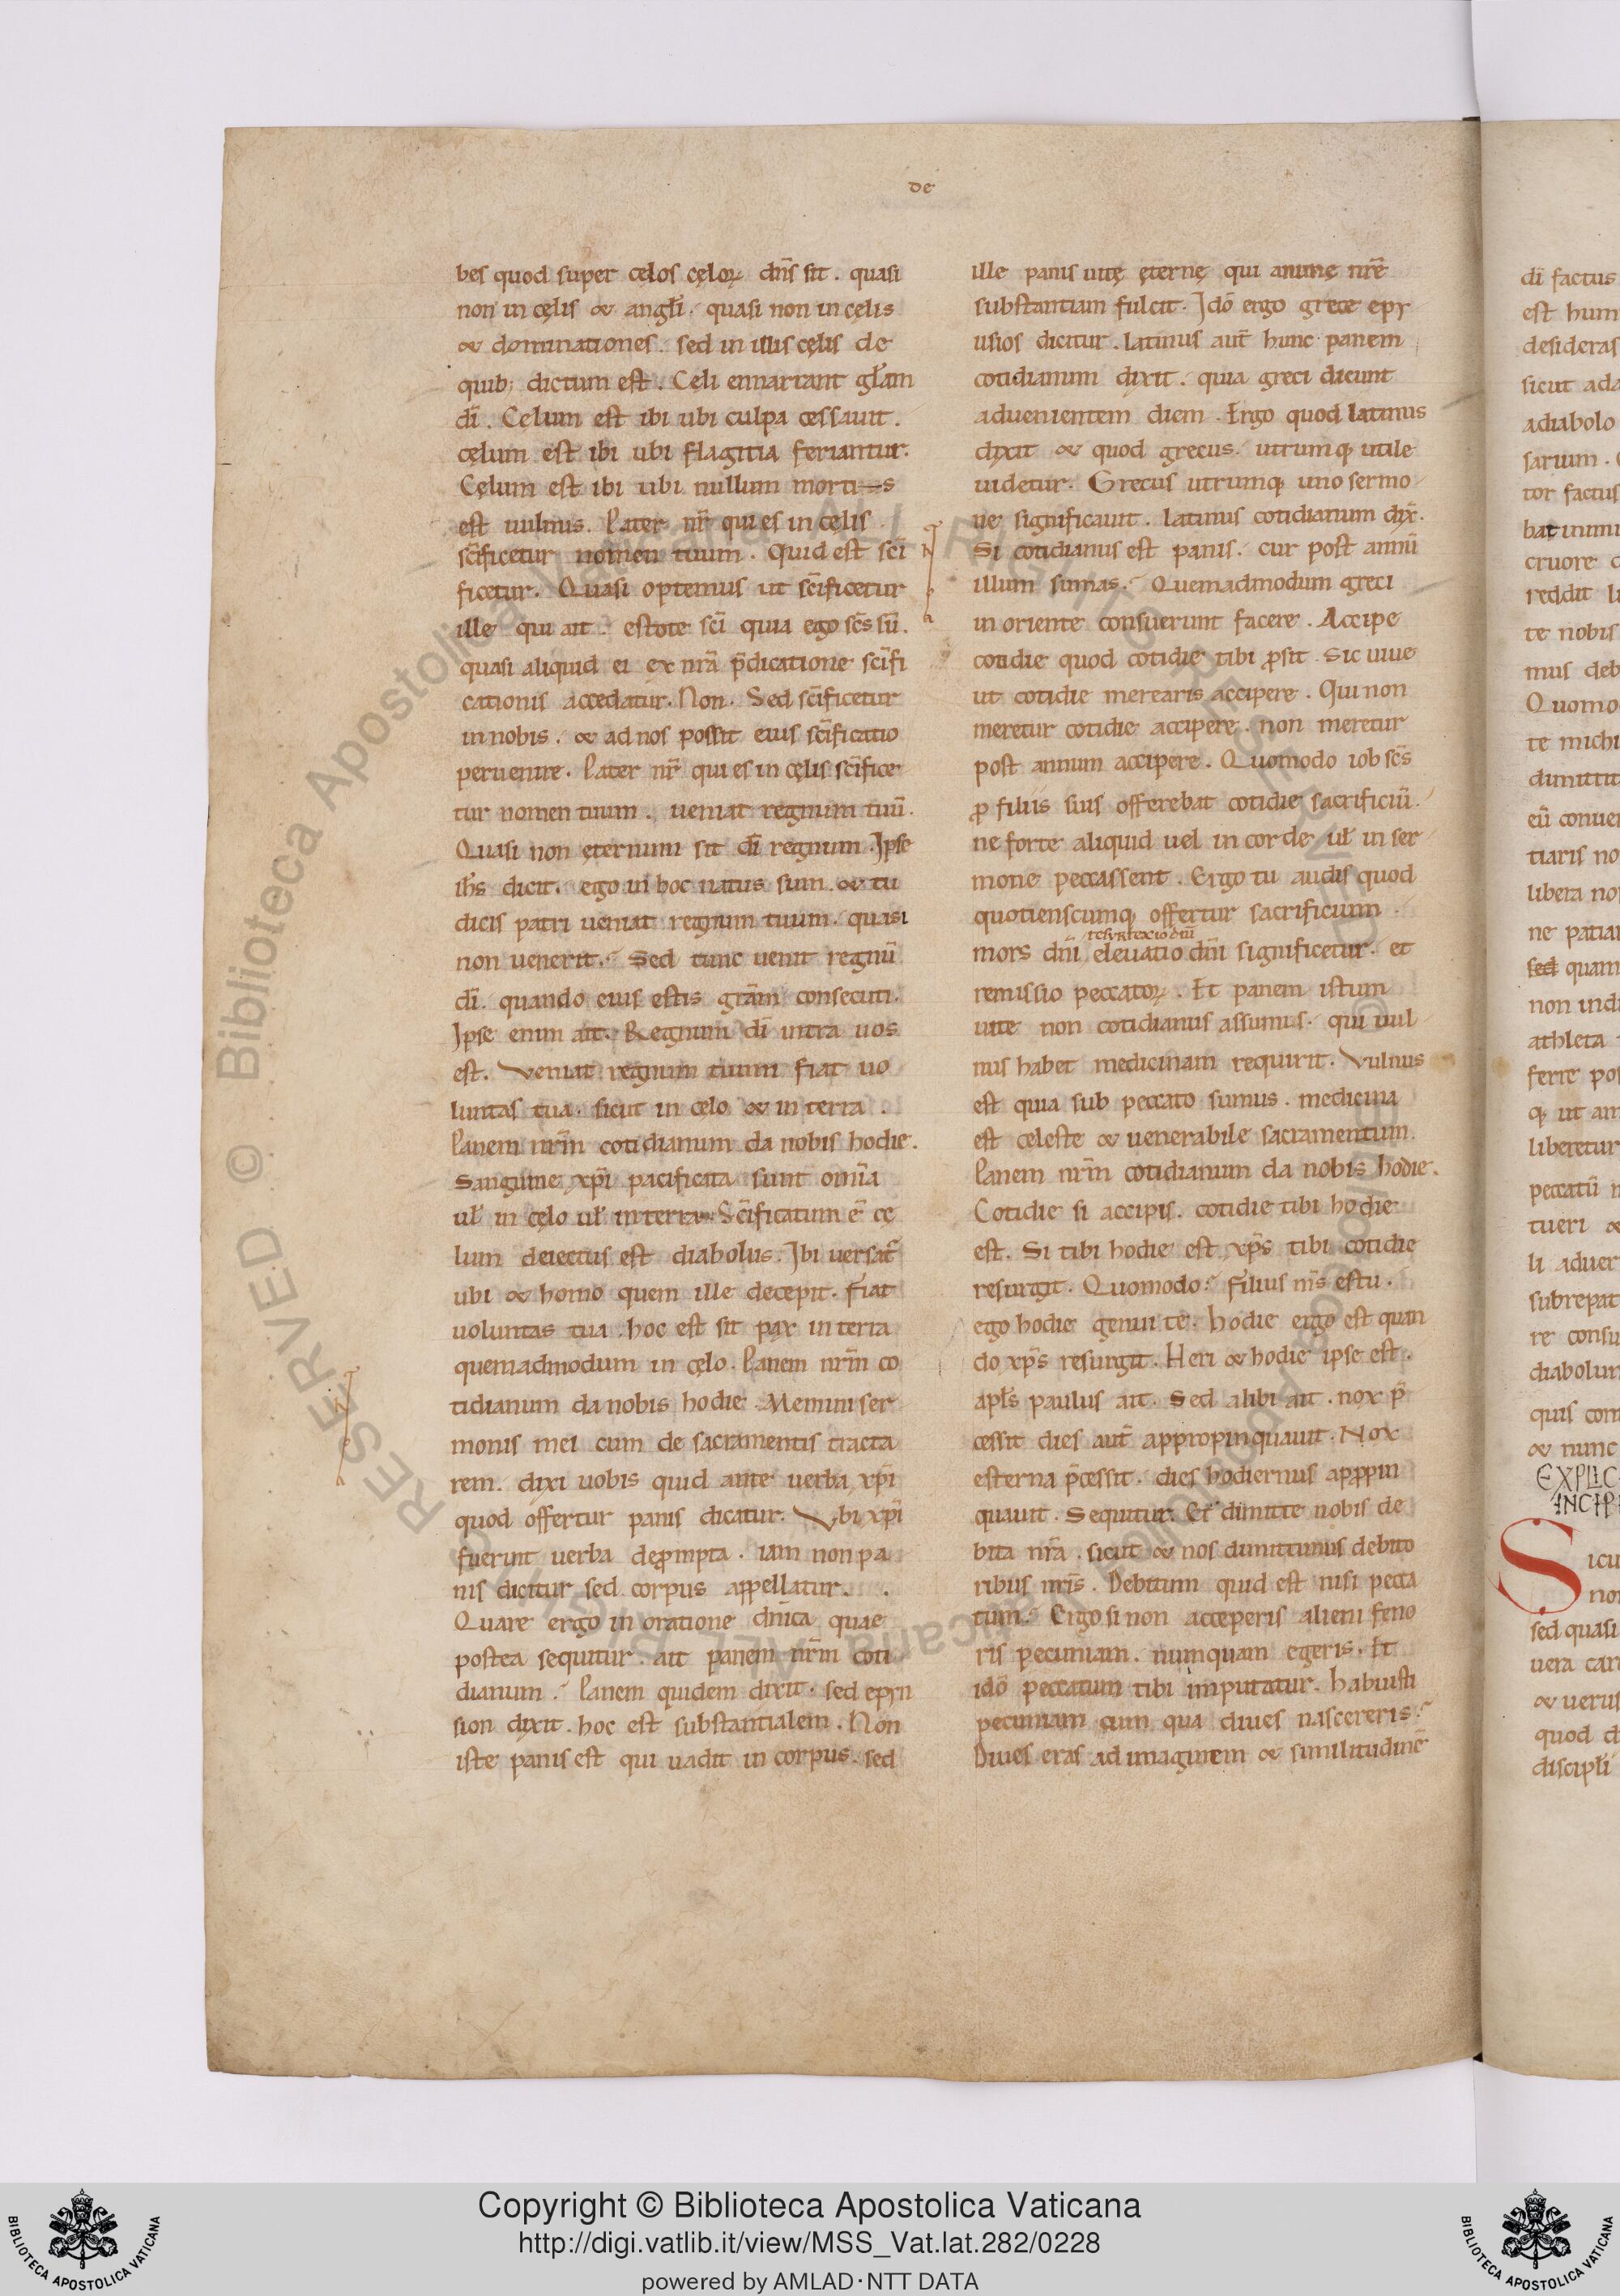 de
bes quod super celos cęloꝝ dñs sit. quasi
non in cęlis & angl̃i. quasi non in cęlis
& dominationes. sed in illis cęlis de
quib; dictum est. Celi ennarrant gl̃am
dĩ. Celum est ibi ubi culpa cessauit.
cęlum est ibi ubi flagitia feriantur.
Cęlum est ibi ubi nullum morti—s
est uulnus. Pater nr̃ qui es in cęlis.
sc̃ificetur nomen tuum. Quid est sc̃i
ficetur. Quasi optemus ut sc̃ificetur
ille qui ait. estote sc̃i quia ego sc̃s sũ.
quasi aliquid ei ex nr̃a p̃dicatione sc̃ifi
cationis accedatur. Non. Sed sc̃ificetur
in nobis. & ad nos possit eius sc̃ificatio
peruenire. Pater nr̃ qui es in cęlis sc̃ifice
tur nomen tuum. ueniat regnum tuũ.
Quasi non ęternum sit dĩ regnum. Ipse
ih̃s dicit. ego in hoc natus sum. & tu
dicis patri ueniat regnum tuum. quasi
non uenerit. Sed tunc uenit regnũ
dĩ. quando eius estis grãm consecuti.
Ipse enim ait. Regnum dĩ intra uos
est. Veniat regnum tuum fiat uo
luntas tua. sicut in celo & in terra.
Panem nrm̃ cotidianum da nobis hodie.
Sanguine xp̃i pacificata sunt omĩa
ul̃ in cęlo ul̃ in terra. Sc̃ificatum ẽ cę
lum deiectus est diabolus. Ibi uersat̃
ubi & homo quem ille decepit. Fiat
uoluntas tua. hoc est sit pax in terra
quemadmodum in cęlo. Panem nrm̃ co
tidianum da nobis hodie. Memini ser
monis mei cum de sacramentis tracta
rem. dixi uobis quid ante uerba xp̃i
quod offertur panis dicatur. Vbi xp̃i
fuerint uerba deꝓmpta. iam non pa
nis dicitur sed corpus appellatur.
Quare ergo in oratione dñica quae
postea sequitur. ait panem nrm̃ coti
dianum. Panem quidem dixit. sed epyu
sion dixit. hoc est substantialem. Non
iste panis est qui uadit in corpus. sed
ille panis uitę ęternę qui animę nr̃e
substantiam fulcit. Idõ ergo grece epy
usios dicitur. latinus aut̃ hunc panem
cotidianum dixit. quia greci dicunt
aduenientem diem. Ergo quod latinus
dixit & quod grecus. utrumq; utile
uidetur. Grecus utrumq; uno sermo
ne significauit. latinus cotidianum dix̃.
Si cotidianus est panis. cur post annũ
illum sumas. Quemadmodum greci
in oriente consuerunt facere. Accipe
cotidie quod cotidie tibi ꝓsit. Sic uiue
ut cotidie merearis accipere. Qui non
meretur cotidie accipere. non meretur
post annum accipere. Quomodo iob sc̃s
ꝓ filiis suis offerebat cotidie sacrificiũ.
ne forte aliquid uel in corde ul̃ in ser
mone peccassent. Ergo tu audis quod
quotienscumq; offertur sacrificium.
resurrexio dñi
mors dñi eleuatio dñi significetur. et
remissio peccatoꝝ. Et panem istum
uite non cotidianus assumis. qui uul
nus habet medicinam requirit. Vulnus
est quia sub peccato sumus. medicina
est celeste & uenerabile sacramentum.
Panem nrm̃ cotidianum da nobis hodie.
Cotidie si accipis. cotidie tibi hodie
est. Si tibi hodie est xp̃s tibi cotidie
resurgit. Quomodo. Filius ms̃ es tu.
ego hodie genui te. hodie ergo est quan
do xp̃s resurgit. Heri & hodie ipse est.
apl̃s paulus ait. Sed alibi ait. nox p̃
cessit dies aut̃ appropinquauit. Nox
esterna p̃cessit. dies hodiernus apꝓpin
quauit. Sequitur. Et dimitte nobis de
bita nr̃a. sicut & nos dimittimus debito
ribus nr̃is. Debitum quid est nisi pecca
tum. Ergo si non acceperis alieni feno
ris pecuniam. numquam egeris. Et
idõ peccatum tibi imputatur. habuisti
pecuniam cum qua diues nascereris.
Diues eras ad imaginem & similitudinẽ
dĩ factus
est hum
desideras
sicut ada
a diabolo
sarium.
tor factus
bat inimi
cruore
reddit li
te nobis
mus deb
Quomo
te michi
dimittit
eũ conue
tiaris no
libera no
ne patia
sed quam
non indu
athleta
ferre pos
q; ut am
liberetur
peccatũ
tueri &
li aduer
subrepat
re consu
diabolum
quis con
& nunc
EXPLIC
INCIP
Sicu
no
sed quasi
uera car
& uerus
quod d
discipl̃i
© Biblioteca Apostolica Vaticana ALL RIGHTS RESERVED
Copyright © Biblioteca Apostolica Vaticana
http://digi.vatlib.it/view/MSS_Vat.lat.282/0228
powered by AMLAD·NTT DATA
BIBLIOTECA APOSTOLICA VATICANA
BIBLIOTECA APOSTOLICA VATICANA